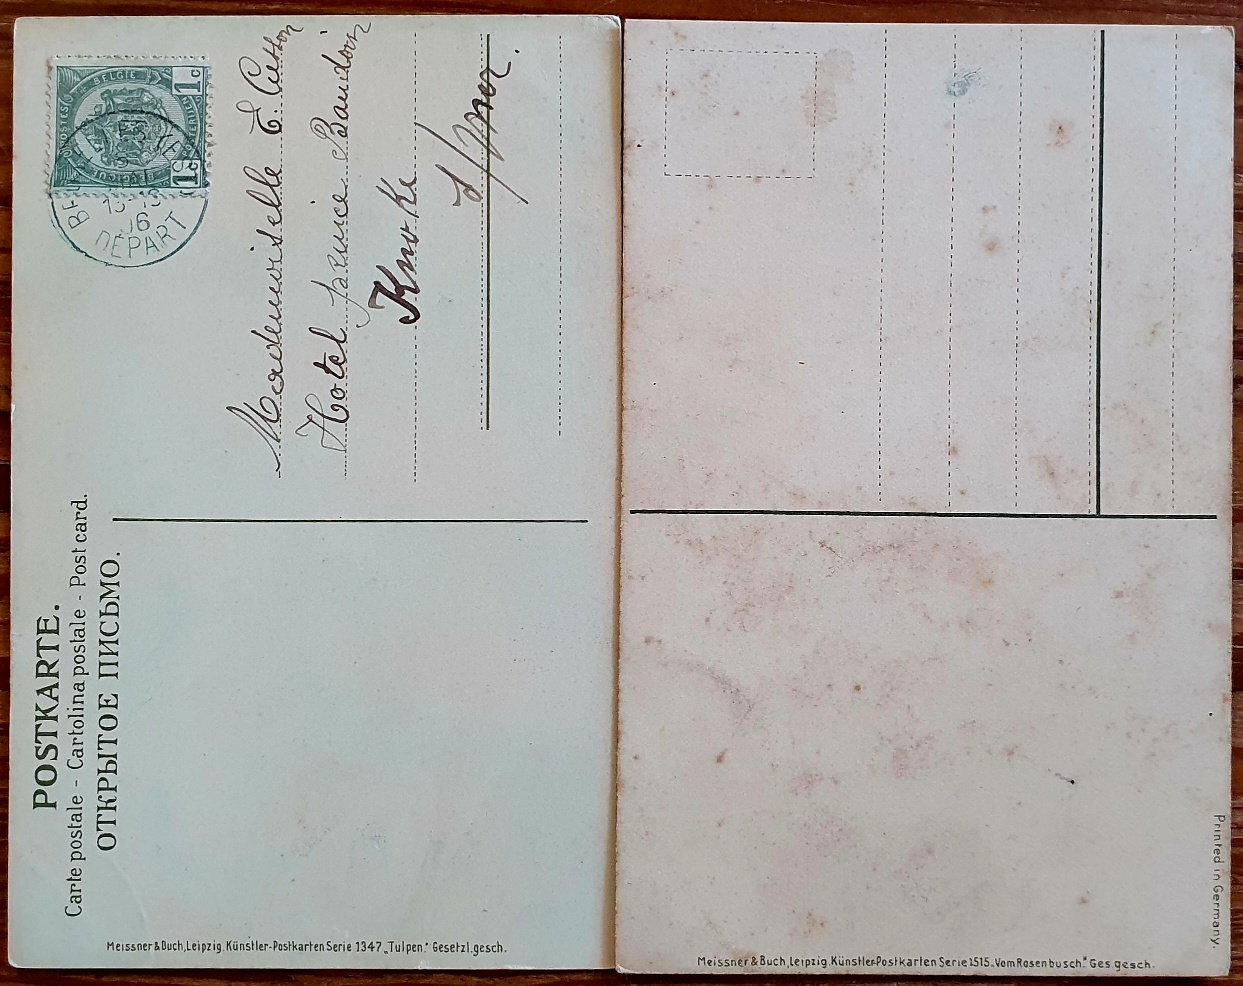 POSTKARTE.
Carte postale - Cartolina postale - Post card.
ОТКРЫТОЕ ПИСЬМО.
POSTES
BELGIE
BELGIQUE
1c
1c
06
DÉPART
Mademoiselle E. Cutton
Hotel Baudoin
Knocke
s/mer.
Meissner & Buch, Leipzig. Künstler-Postkarten Serie 1347 „Tulpen." Gesetzl. gesch.
Meissner & Buch, Leipzig. Künstler-Postkarten Serie 1515 „Vom Rosenbusch." Ges. gesch.
Printed in Germany.